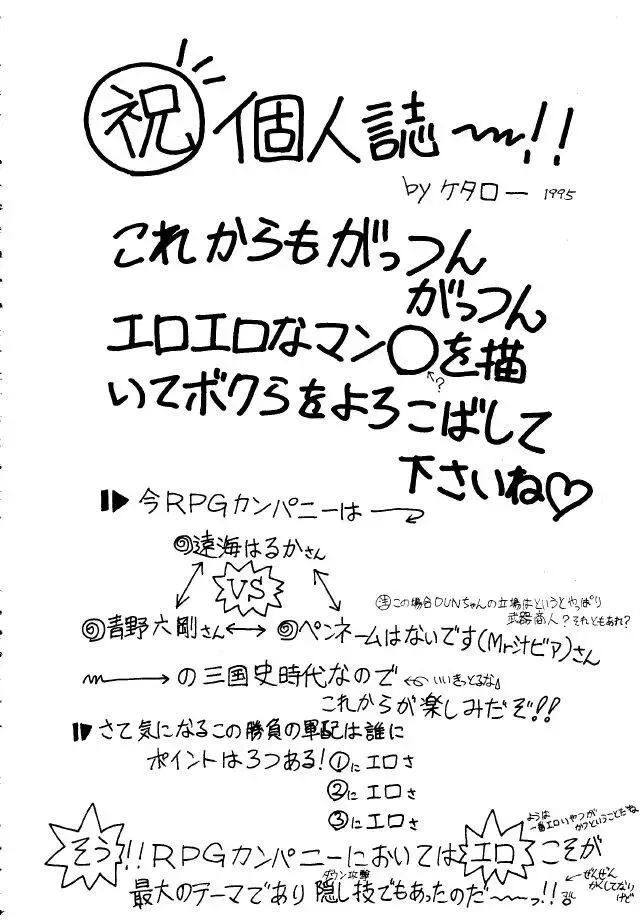 祝 個人誌〜!!
by ケタロー 1995
これからもがっつん
がっつん
エロエロなマン○を描
?
いてボクらをよろこばして
下さいね♡
今RPGカンパニーは
遠海はるかさん
VS
青野六剛さん ↔ ペンネームはないです(Mr汁ビア)さん
注この場合DUNちゃんの立場はというとやっぱり
武器商人?それともあれ?
→の三国史時代なので
←いいきっとるな。
これからが楽しみだぞ!!
さて気になるこの勝負の軍配は誰に
ポイントは3つある!①にエロさ
②にエロさ
③にエロさ
ようは
一番エロいやつが
かつということだね
そう!!RPGカンパニーにおいてはエロこそが
ダウン攻撃
最大のテーマであり隠し技でもあったのだ〜っ!!
←ぜんぜん
かくしてない
けど